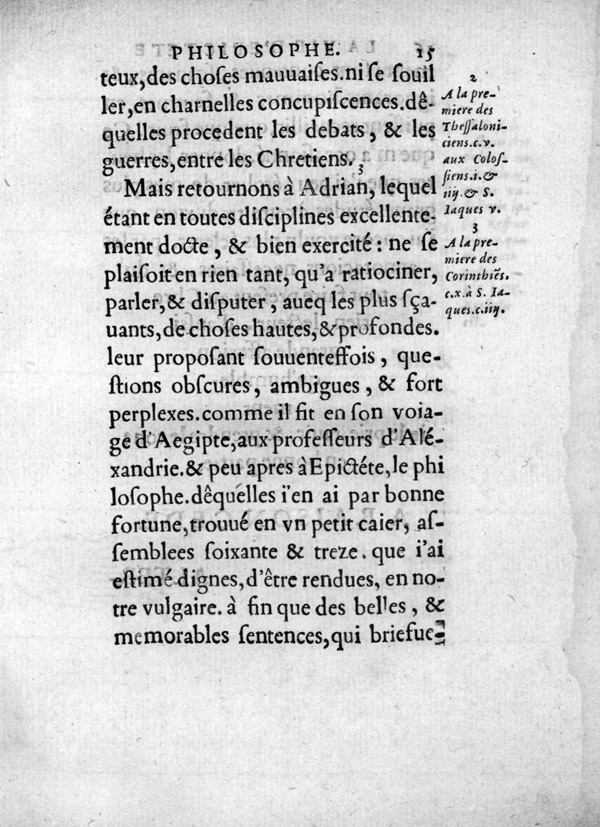 PHILOSOPHE. 15
teux,des choſes mauuaiſes.ni ſe ſouil
ler,en charnelles concupiſcences.dê-
quelles procedent les debats, & les
guerres,entre les Chretiens.
3
Mais retournons à Adrian, lequel
étant en toutes diſciplines excellente-
ment docte, & bien exercité: ne ſe
plaiſoit en rien tant, qu'a ratiociner,
parler,& diſputer, aueq les plus ſça-
uants,de choſes hautes,& profondes.
leur propoſant ſouuenteſſois, que-
ſtions obſcures, ambigues, & fort
perplexes.comme il fit en ſon voia-
ge d'Aegipte,aux profeſſeurs d'Alé-
xandrie.& peu apres à Epictéte,le phi
loſophe.dêquelles i'en ai par bonne
fortune,trouué en vn petit caier, aſ-
ſemblees ſoixante & treze. que i'ai
eſtimé dignes,d'être rendues, en no-
tre vulgaire. à fin que des belles, &
memorables ſentences,qui briefue-
2
A la pre-
miere des
Theſſaloni-
ciens.c.v.
aux Coloſ-
ſiens.i.&
iiij.& S.
Iaques v.
3
A la pre-
miere des
Corinthiēs.
c.x.à S. Ia-
ques.c.iiij.